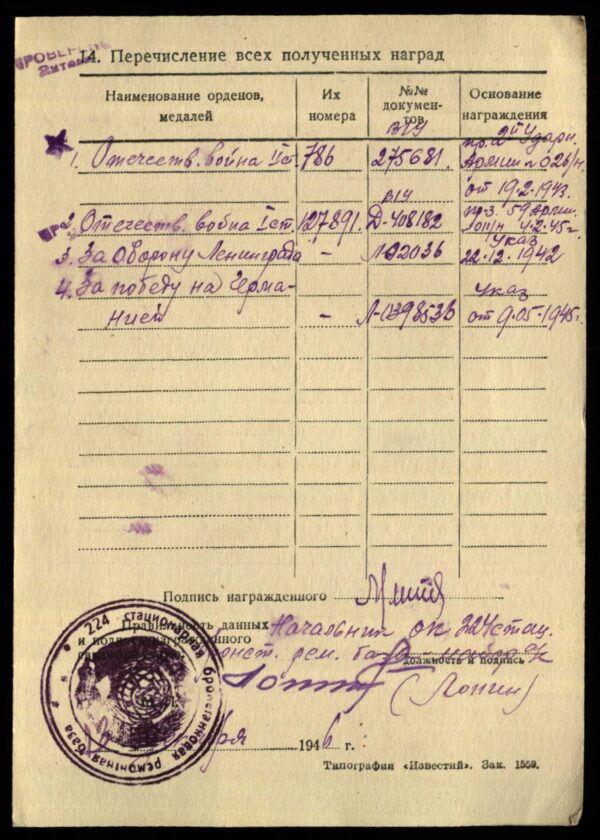 14. Перечисление всех полученных наград
Наименование орденов, медалей
Их номера
№№ документов
Основание награждения
1. Отечеств. война II ст. 786 275681. пр. 2й Ударн. Армии
от 19.2.1943.
2. Отечеств. война I ст. 127891. Д-408182 59 Армии
4.2.45г.
3. За Оборону Ленинграда - Указ 22.12.1942
4. За победу на Германией - Указ от 9.05.1945г.
Подпись награжденного
Правильность данных
и подписи награжденного
Начальник ок 224 стац.
рем. базы
должность и подпись
224 стационарная бронетанковая ремонтная база
194 г.
Типография «Известий». Зак. 1559.